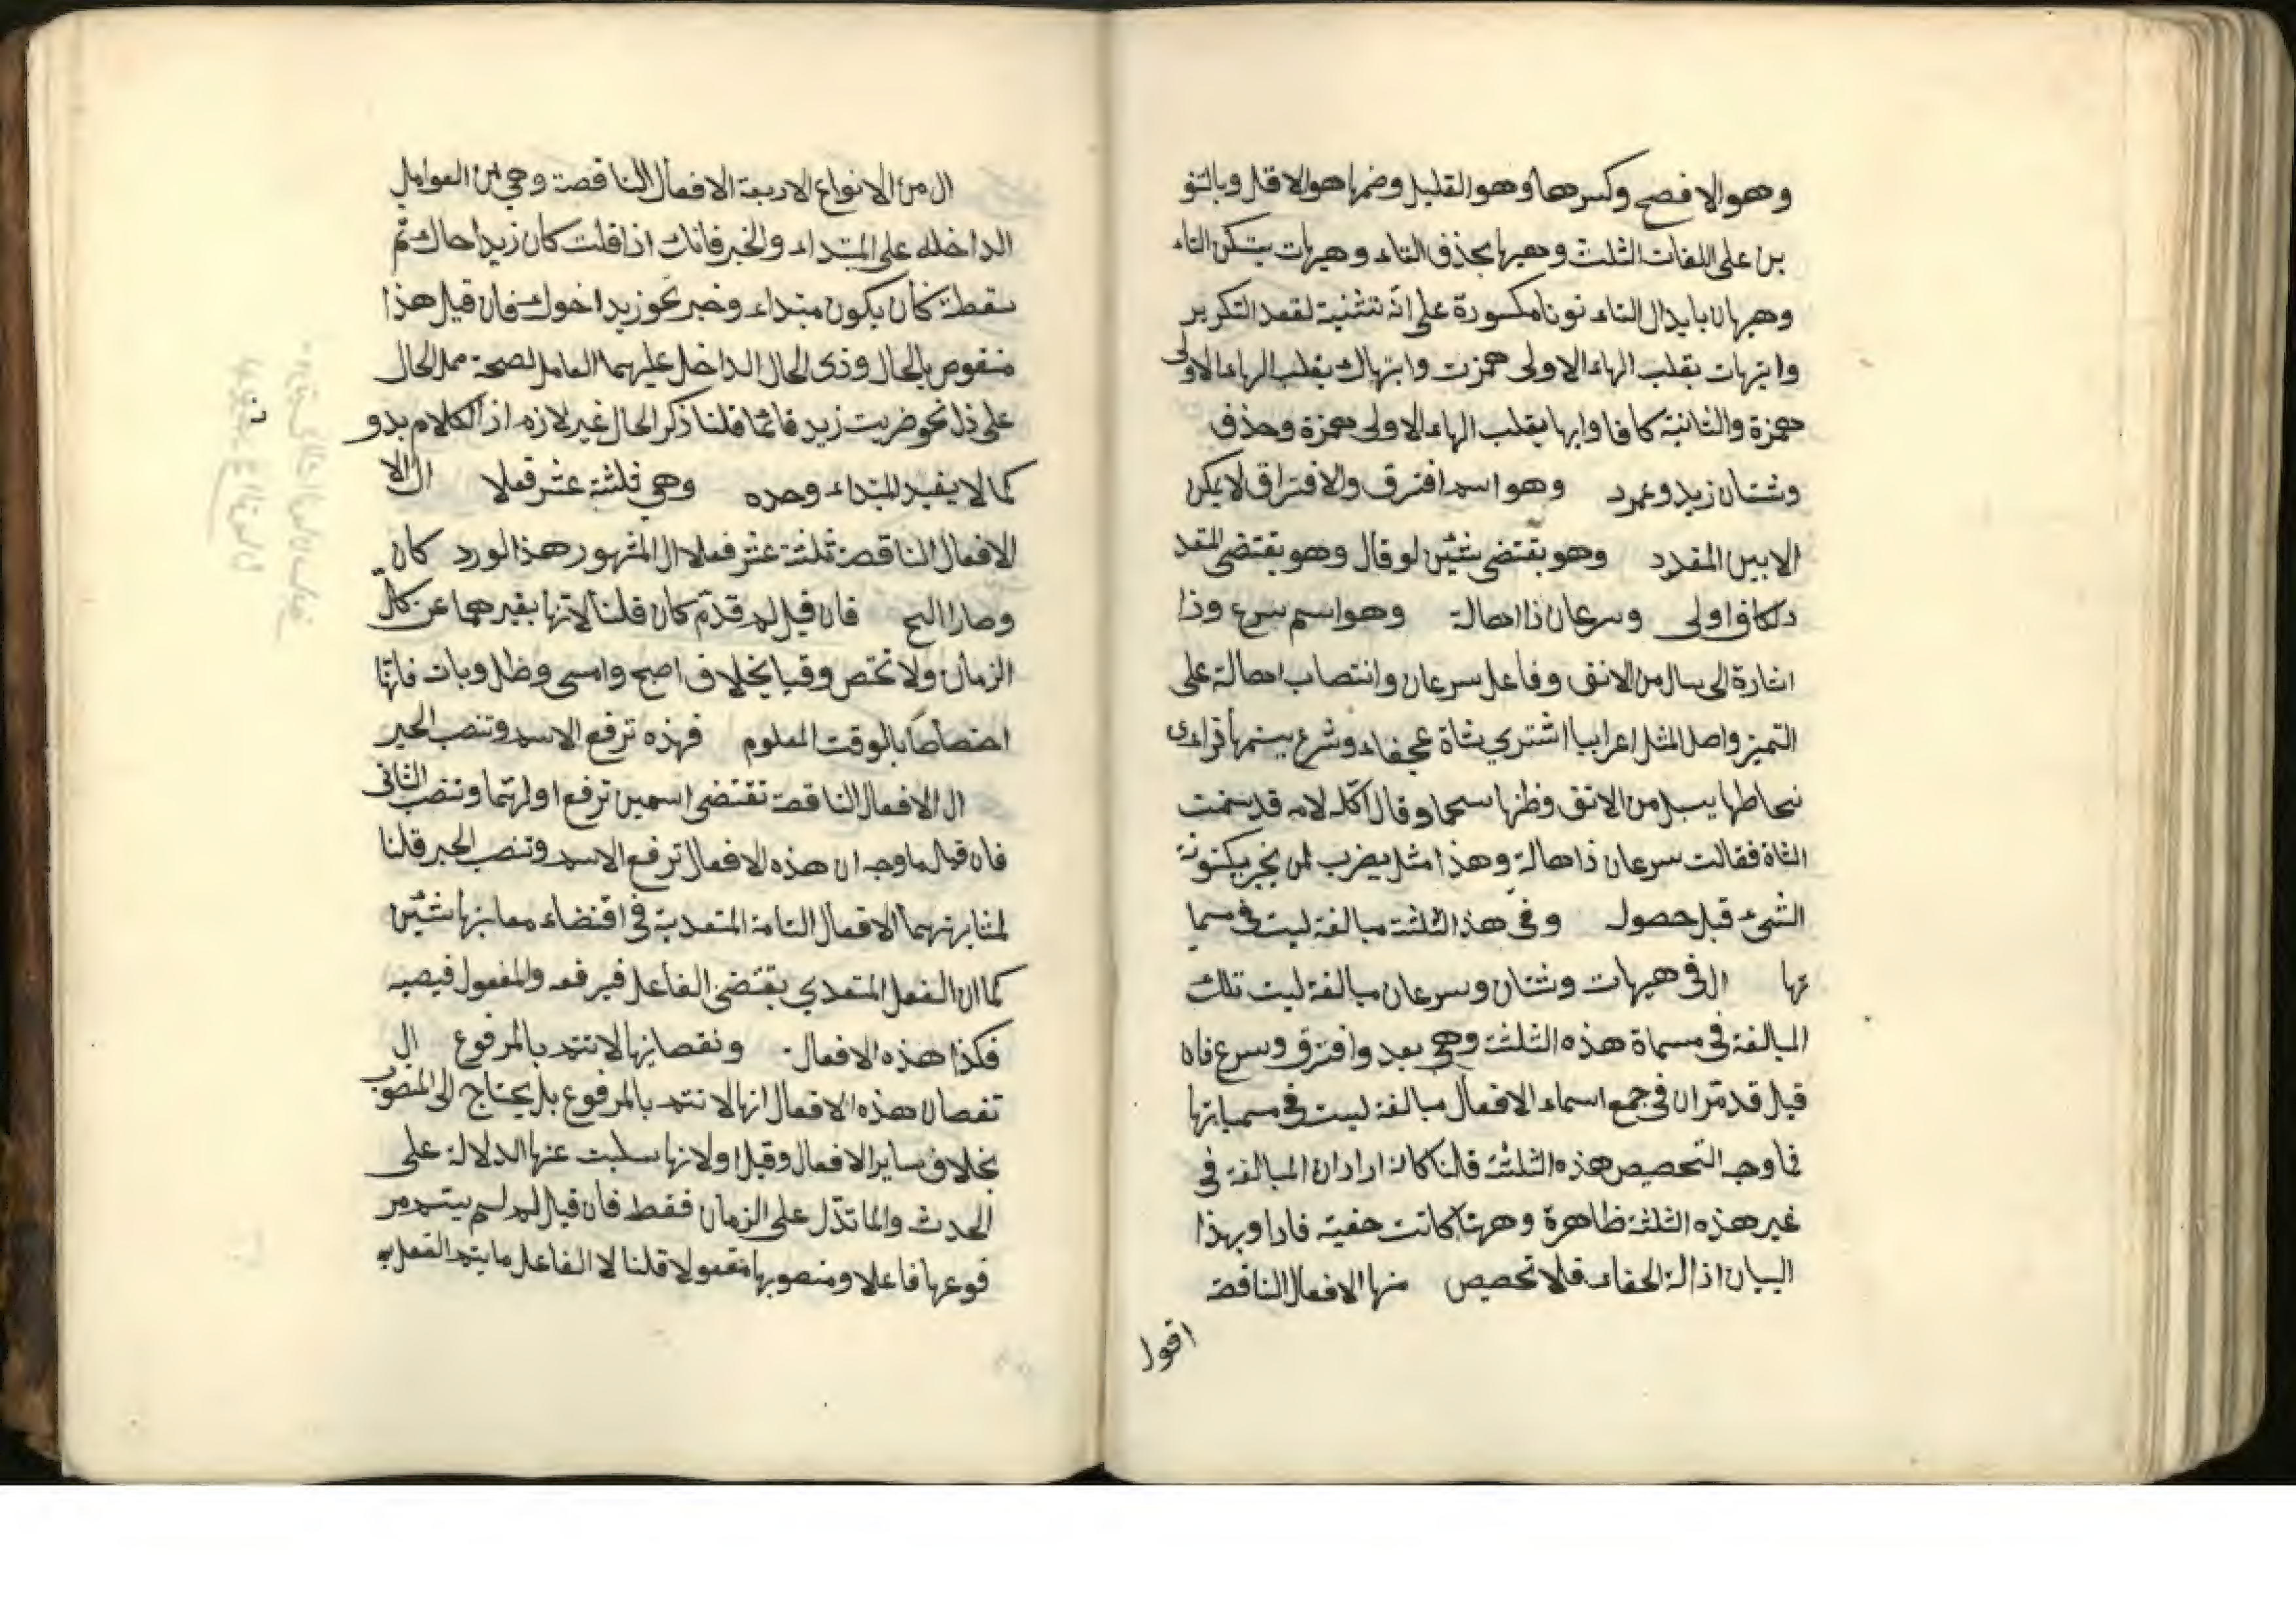 وهو الافصح وكسرها وهو القليل وضمها هو الاقل وبالتنو
ين على اللغات الثلث وهيها بحذف التاء وهيهات بتسكن التاء
وهيهان بابدال التاء نونا مكسورة على انه تثنية لقصد التكرير
وايهات بقلب الهاء الاولى همزت وايهاك بقلب الهاء الاولى
همزة والثانية كافا وايها بقلب الهاء الاولى همزة وحذف
وشتان زيد وعمرد وهو اسم افترق والافتراق لا يمكن
الا بين المتعدد وهو يقتضى شئين لو قال وهو يقتضى المتعد
د لكان اولى وسرعان ذا اهالة وهو اسم سرع وذا
اشارة الى سال من الانف وفاعل سرعان وانتصاب اهالة على
التميز واصل المثل اعرابيا اشترى شاة عجفاء وشرع
يسيل من الانف وظنها سحما وقال لامه قد سمنت
الشاة فقالت سرعان ذا هالة وهذا مثل يضرب لمن يخبر بكنونة
الشئ قبل حصول وفى هذ الثلثة مبالغة ليت فى مسميا
تها ال فى هيهات وشتان وسرعان مبالغة ليت تلك
المبالغة فى مسماة هذه الثلثة وهى بعد وافترق وسرع فان
قيل قد مر ان فى جمع اسماء الافعال مبالغة ليست فى مسمياتها
فما وجه التحصيص هذه الثلثة قلنا كانه اراد ان المبالغة فى
غير هذه الثلثة ظاهرة وههنا كانت خفية فاراد بهذا
البيان ازالة الخفاء فلا تحصيص منها الافعال الناقصة
اقول
ال من الانواع الاربعة الافعال الناقصة وهى من العوامل
الداخله على المبتداء والخبر فانك اذا قلت كان زيد اخاك ثم
سقطت كان يكون مبتداء وخبر نحو زيد اخوك فان قيل هذا
منقوص بالحال وذى الحال الداخل عليهما العامل لصحة حمل الحال
على ذل نحو ضربت زيد قائما قلنا ذكر الحال غير لازم اذ الكلام بدو
كما لا يفيد المبتداء وحده وهى ثلثة عشر فعلا ال الا
الافعال الناقصة ثلثة عشر فعلا ال المشهور هذ الورد كان
وصار الخ فان قيل لم قدم كان قلنا لانها يعبر هما عن كل
الزمان ولا تختص وقتا بخلاف اصبح وامسى وظل وبات فانها
اختصاصا بالوقت المعلوم فهذه ترفع الاسم وتنصب الخبر
ال الافعال الناقصة تقتضى اسمين ترفع اولهما وتنصب الثانى
فان قيل ما وجه ان هذه الافعال ترفع الاسم وتنصب الخبر قلنا
لمشابهتهما الافعال التامة المتعدية فى اقتضاء معانيها شئين
كما ان الفعل المتعدي يقتضى الفاعل فيرفعه والمفعول فيصبه
فكذا هذه الافعال ونقصانها لا تتم بالمرفوع ال
نقصان هذه الافعال انها لا تتم بالمرفوع بل يحتاج الى المنصوب
بخلاف ساير الافعال وقيل اولانها سلبت عنها الدلالة على
الحدث وانما تدل على الزمان فقط فان قيل لم لم يتم مر
فوعها فاعلا ومنصوبها مفعولا قلنا لا الفاعل ما يتم الفعل به